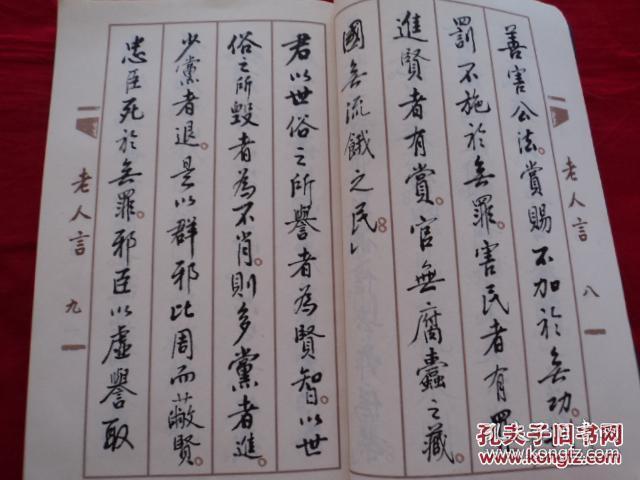 老人言
八
善害公法。賞賜不加於無功。
罰不施於無罪。害民者有罪
進賢者有賞。官無腐蠹之藏。
國無流餓之民。
君以世俗之所譽者為賢智。以世
俗之所毀者為不肖。則多黨者進
少黨者退。是以群邪比周而蔽賢。
忠臣死於無罪。邪臣以虛譽取
老人言
九
孔夫子旧书网
KONGFZ.COM